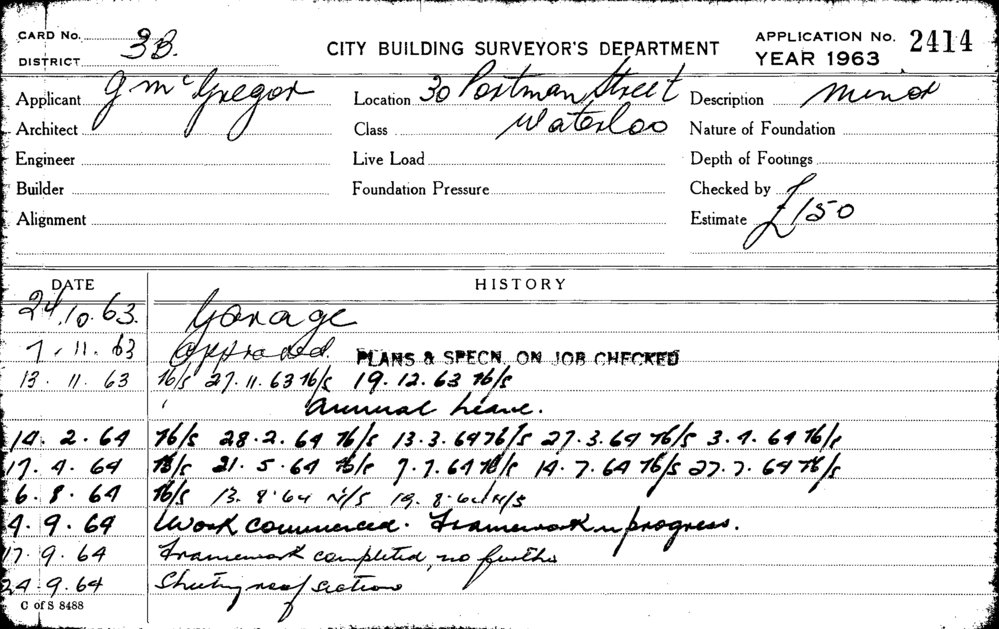 CARD No.
DISTRICT 3B.
CITY BUILDING SURVEYOR'S DEPARTMENT
APPLICATION No. 2414
YEAR 1963
Applicant G McGregor
Location 30 Portman Street
Description Minor
Architect
Class Waterloo
Nature of Foundation
Engineer
Live Load
Depth of Footings
Builder
Foundation Pressure
Checked by
Alignment
Estimate £150
DATE HISTORY
24.10.63. Garage
7.11.63 Approved. PLANS & SPECN. ON JOB CHECKED
13.11.63 N/S 27.11.63 N/S 19.12.63 N/S
Annual Leave.
14.2.64 N/S 28.2.64 N/S 13.3.64 N/S 27.3.64 N/S 3.4.64 N/S
17.4.64 N/S 21.5.64 N/S 7.7.64 N/S 14.7.64 N/S 27.7.64 N/S
6.8.64 N/S 13.8.64 N/S 19.8.64 N/S
4.9.64 Work commenced. Framework in progress.
17.9.64 Framework completed, no further
24.9.64 Sheeting roof section
C of S 8488